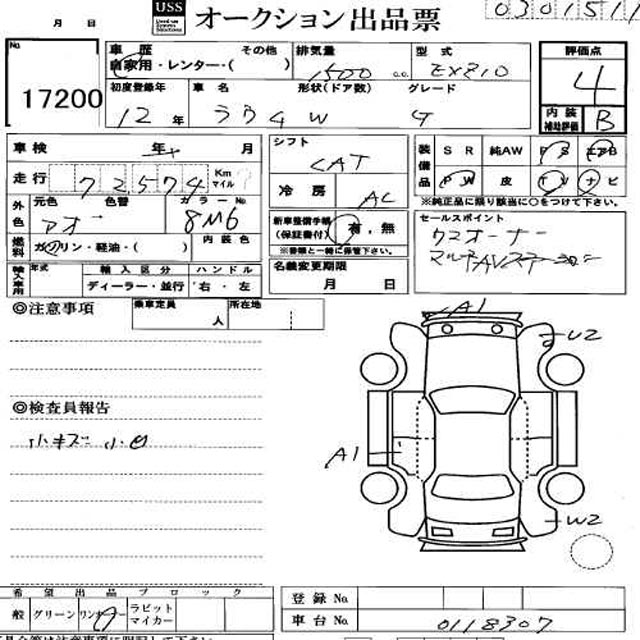 月 日 USS オークション出品票 0301511
No. 17200
車歴 自家用・レンター・( ) その他
排気量 1500 c.c.
型式 EXZ10
評価点 4
内装補助評価 B
初度登録年 12年
車名 ラウム
形状(ドア数) W
グレード G
車検 年 月
シフト CAT
装備品 SR 純AW PS エアB
PW 皮 TV ナビ
走行 72574 Km マイル
冷房 AC
※純正品に限り該当に○をつけて下さい。
外色 元色 アオ 色替 カラーNo. 8M6
新車整備手帳(保証書付) 有・無
※書類と一緒に保管下さい。
セールスポイント
ワンオーナー
マルチAVステーション
燃料 ガソリン・軽油・( ) 内装色
名義変更期限 月 日
輸入車用 年式 輸入区分 ディーラー・並行 ハンドル 右・左
◎注意事項
乗車定員 人 所在地
A1
U2
◎検査員報告
小キズ 小凹
A1
W2
希望出品ブロック
般 グリーン ワンオーナー ラビット マイカー
登録No.
車台No. 0118307